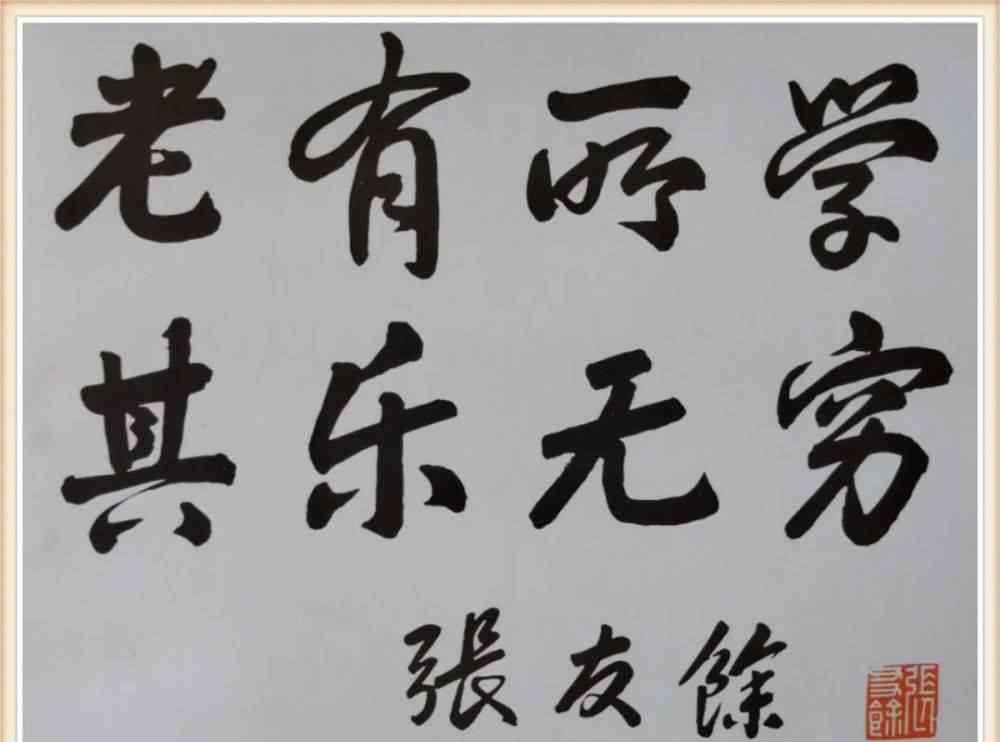 老有所学
其乐无穷
張友餘
張友餘